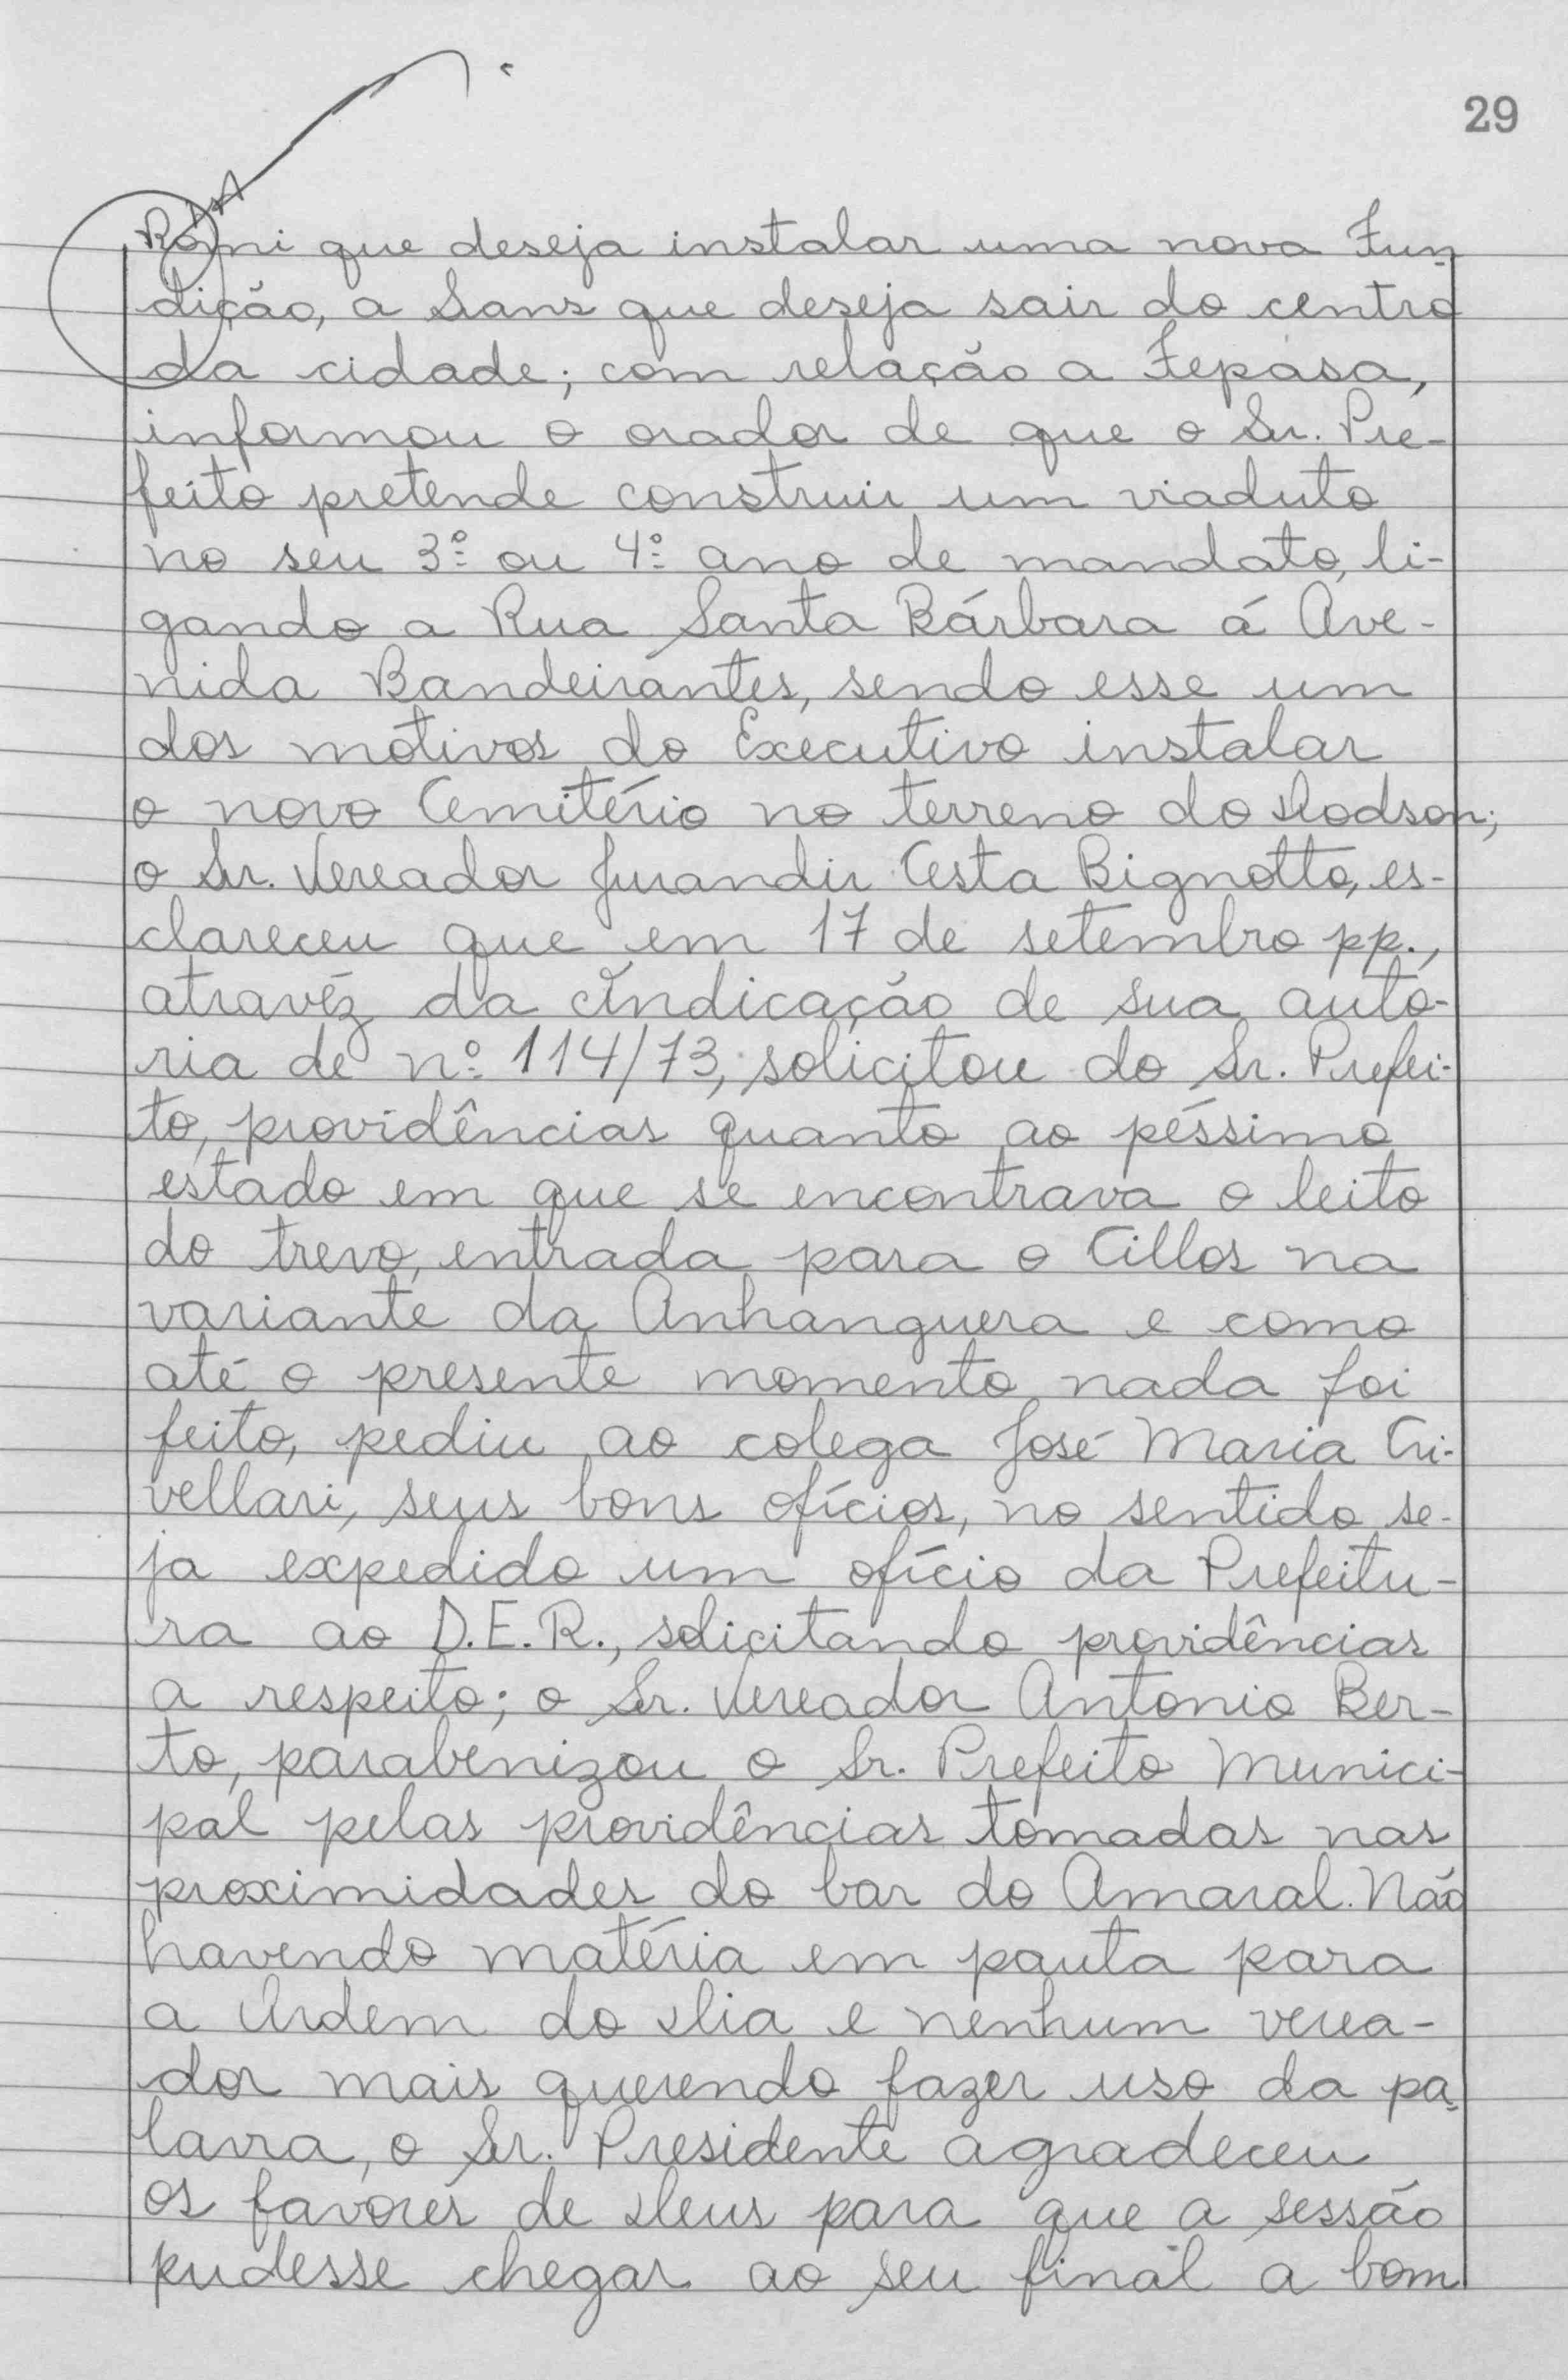 29
Romi que deseja instalar uma nova Fun-
dição, a Sans que deseja sair do centro
da cidade; com relação a Fepasa,
informou o orador de que o Sr. Pre-
feito pretende construir um viaduto
no seu 3º ou 4º ano de mandato, li-
gando a Rua Santa Bárbara á Ave-
nida Bandeirantes, sendo esse um
dos motivos do Executivo instalar
o novo Cemitério no terreno do Dodson;
o Sr. Vereador Jurandir Cesta Bignotto, es-
clareceu que em 17 de setembro pp.,
atravéz da Indicação de sua auto-
ria de nº 114/73, solicitou do Sr. Prefei-
to, providências quanto ao péssimo
estado em que se encontrava o leito
do trevo, entrada para o Cillos na
variante da Anhanguera e como
até o presente momento nada foi
feito, pediu ao colega José Maria Cri-
vellari, seus bons ofícios, no sentido se-
ja expedido um ofício da Prefeitu-
ra ao D.E.R., solicitando providências
a respeito; o Sr. Vereador Antonio Ber-
to, parabenizou o Sr. Prefeito Munici-
pal pelas providências tomadas nas
proximidades do bar do Amaral. Não
havendo matéria em pauta para
a Ordem do Dia e nenhum verea-
dor mais querendo fazer uso da pa-
lavra, o Sr. Presidente agradeceu
os favores de Deus para que a sessão
pudesse chegar ao seu final a bom